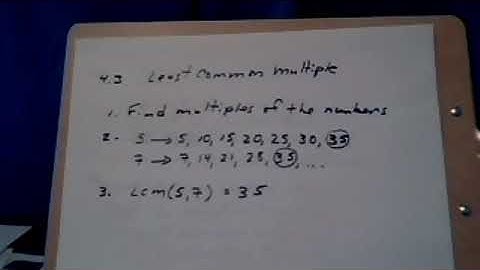 4.3 Least Common Multiple
1. Find multiples of the numbers
2. 5 → 5, 10, 15, 20, 25, 30, 35
7 → 7, 14, 21, 28, 35, ...
3. LCM(5,7) = 35